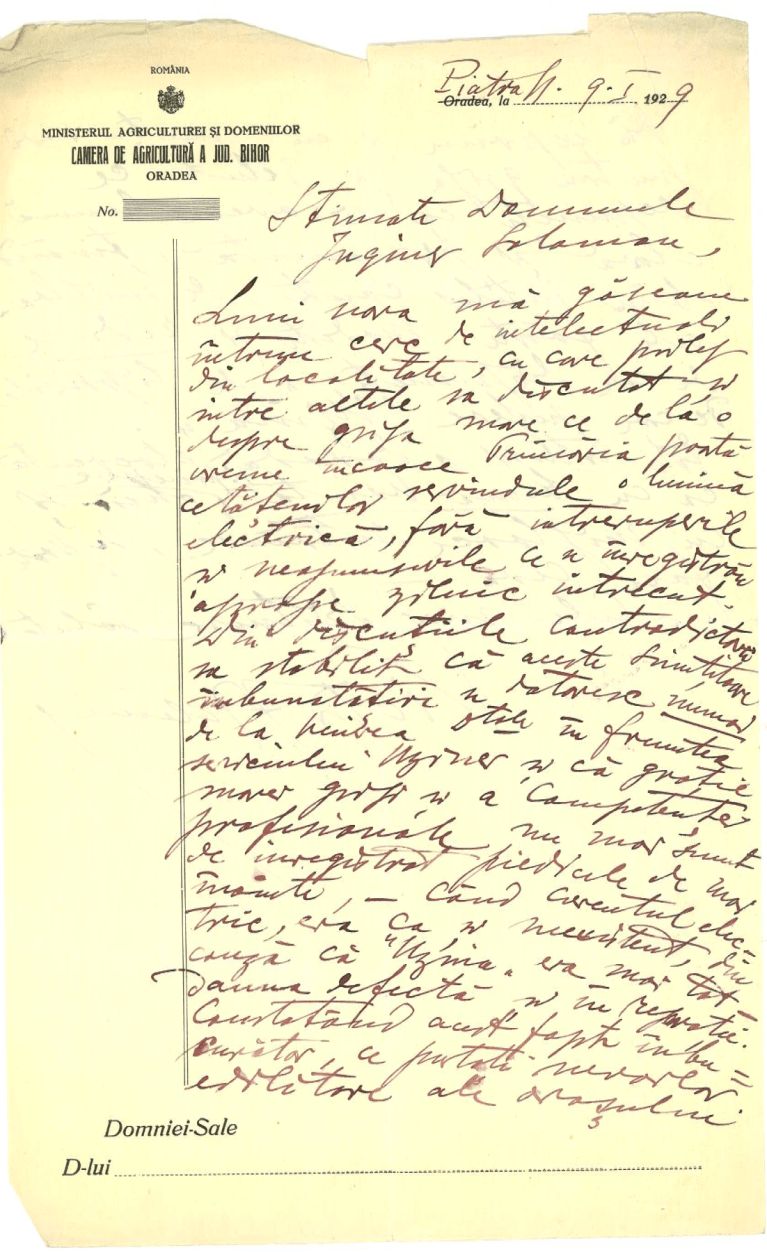 ROMÂNIA
MINISTERUL AGRICULTUREI ȘI DOMENIILOR
CAMERA DE AGRICULTURĂ A JUD. BIHOR
ORADEA
No.
Piatra N. 9.I 1929
Oradea, la
Stimate Domnule
Inginer Solomon,
Luni seara mă găseam
întrun cerc de intelectuali
din localitate, cu care prilej
intre altele sa discutat și
despre grija mare ce de la o
vreme încoace Primăria poartă
cetățenilor servindule o lumină
electrică, fără intreruperile
și neajunsurile ce se înregistrau
aproape zilnic intrecut.
Din discuțiile contradictorii
sa stabilit că aceste simțitoare
îmbunatatiri se datoresc numai
de la venirea Dtale în fruntea
serviciului Uzinei și că grație
marei griji și a competenței
profesionale nu mai sunt
de inregistrat piedicile de mai
înainte, — când curentul elec-
tric, era ca și neexistent, din
cauză că "Uzina" era mai tot-
dauna defectă și în reparație.
Constatând acest fapt îmbu=
curător, ce purtați nevoilor
edilitare ale orașului
Domniei-Sale
D-lui